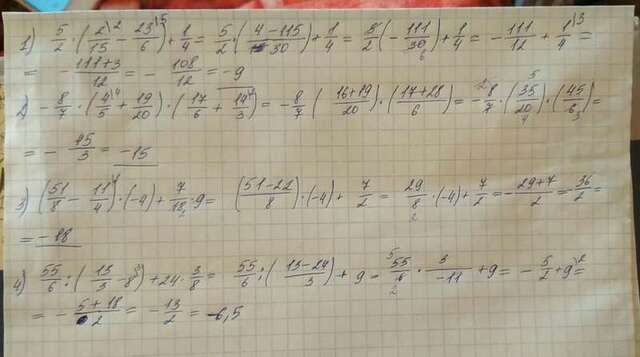 1) 5/2 · (2\2/15 − 23\5/6) + 1/4 = 5/2 · (4−115/30) + 1/4 = 5/2 (−111/30 6) + 1/4 = −111/12 + 1\3/4 =
= −111+3/12 = −108/12 = −9
2) −8/7 · (4\4/5 + 19/20) · (17/6 + 14\2/3) = −8/7 (16+19/20) · (17+28/6) = −8/7 · (35/20) · (45/6) =
= −45/3 = −15
3) (51/8 − 11\2/4) · (−4) + 7/18 · 9 = (51−22/8) · (−4) + 7/2 = 29/8 · (−4) + 7/2 = −29+7/2 = −36/2 =
= −18
4) 55/6 : (13/3 − 8\3) + 24 · 3/8 = 55/6 : (13−24/3) + 9 = 55/6 · 3/−11 + 9 = −5/2 + 9\2 =
= −5+18/2 = −13/2 = −6,5